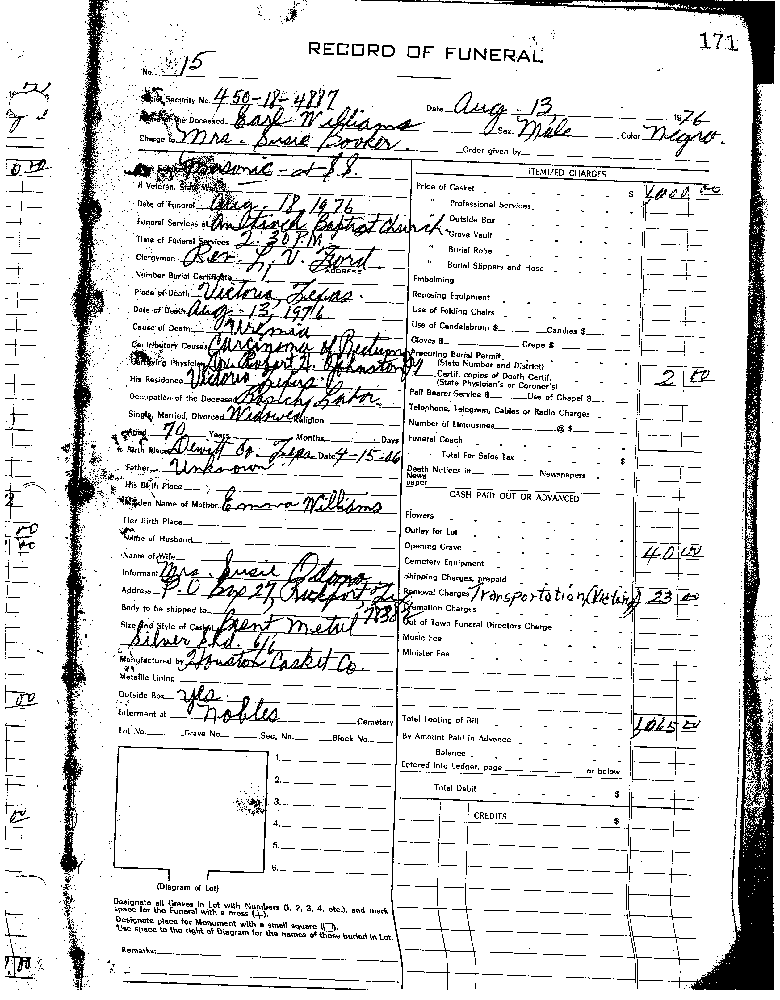 171
RECORD OF FUNERAL
No. 15
Social Security No. 450-18-4887
Date Aug. 13, 1976
Name of the Deceased Earl Williams
Sex Male Color Negro.
Charge to Mrs. Susie Booker.
Order given by
Masonic
If Veteran, State War
Date of Funeral Aug. 18 1976
Funeral Services at Antioch Baptist Church
Time of Funeral Services 2:30 P.M.
Clergyman Rev. L. V. Ford
ADDRESS
Number Burial Certificate
Place of Death Victoria, Texas.
Date of Death Aug-13, 1976
Cause of Death Uremia
Contributory Causes Carcinoma of Rectum
Certifying Physician Dr. Robert Johnston
His Residence Victoria Texas
Occupation of the Deceased Labor
Single, Married, Divorced Widowed Religion
Aged 70 Years Months Days
Birth Place Dewitt Co. Texas Date 4-15-06
Father Unknown
His Birth Place
Maiden Name of Mother Emma Williams
Her Birth Place
Name of Husband
Name of Wife
Informant Mrs. Susie
Address P.O Box 27, Rockport, Tex 78382
Body to be shipped to
Size and Style of Casket Metal
Silver Shd. 6/6
Manufactured by Houston Casket Co.
Metallic Lining
Outside Box yes
Interment at Nobles Cemetery
Lot No. Grave No. Sec. No. Block No.
1.
2.
3.
4.
5.
6.
(Diagram of Lot)
Designate all Graves in Lot with Numbers (1, 2, 3, 4, etc.), and mark
space for the Funeral with a cross (+).
Designate place for Monument with a small square (□).
Use space to the right of Diagram for the names of those buried in Lot.
Remarks:
ITEMIZED CHARGES
Price of Casket $ 1,000 00
" Professional Services
" Outside Box
" Grave Vault
" Burial Robe
" Burial Slippers and Hose
Embalming
Reposing Equipment
Use of Folding Chairs
Use of Candelabrum $ Candles $
Gloves $ Crepe $
Procuring Burial Permit
(State Number and District)
Certif. copies of Death Certif. 2 00
(State Physician's or Coroner's)
Pall Bearer Service $ Use of Chapel $
Telephone, Telegram, Cables or Radio Charges
Number of Limousines @ $
Funeral Coach
Total For Sales Tax $
Death Notices in Newspapers
News
paper
CASH PAID OUT OR ADVANCED
Flowers
Outlay for Lot
Opening Grave 40 00
Cemetery Equipment
Shipping Charges, prepaid
Removal Charges Transportation (Victoria) 23 00
Cremation Charges
Out of Town Funeral Directors Charge
Music Fee
Minister Fee
Total Footing of Bill 1,065 00
By Amount Paid in Advance
Balance
Entered into Ledger, page or below
Total Debit $
CREDITS $